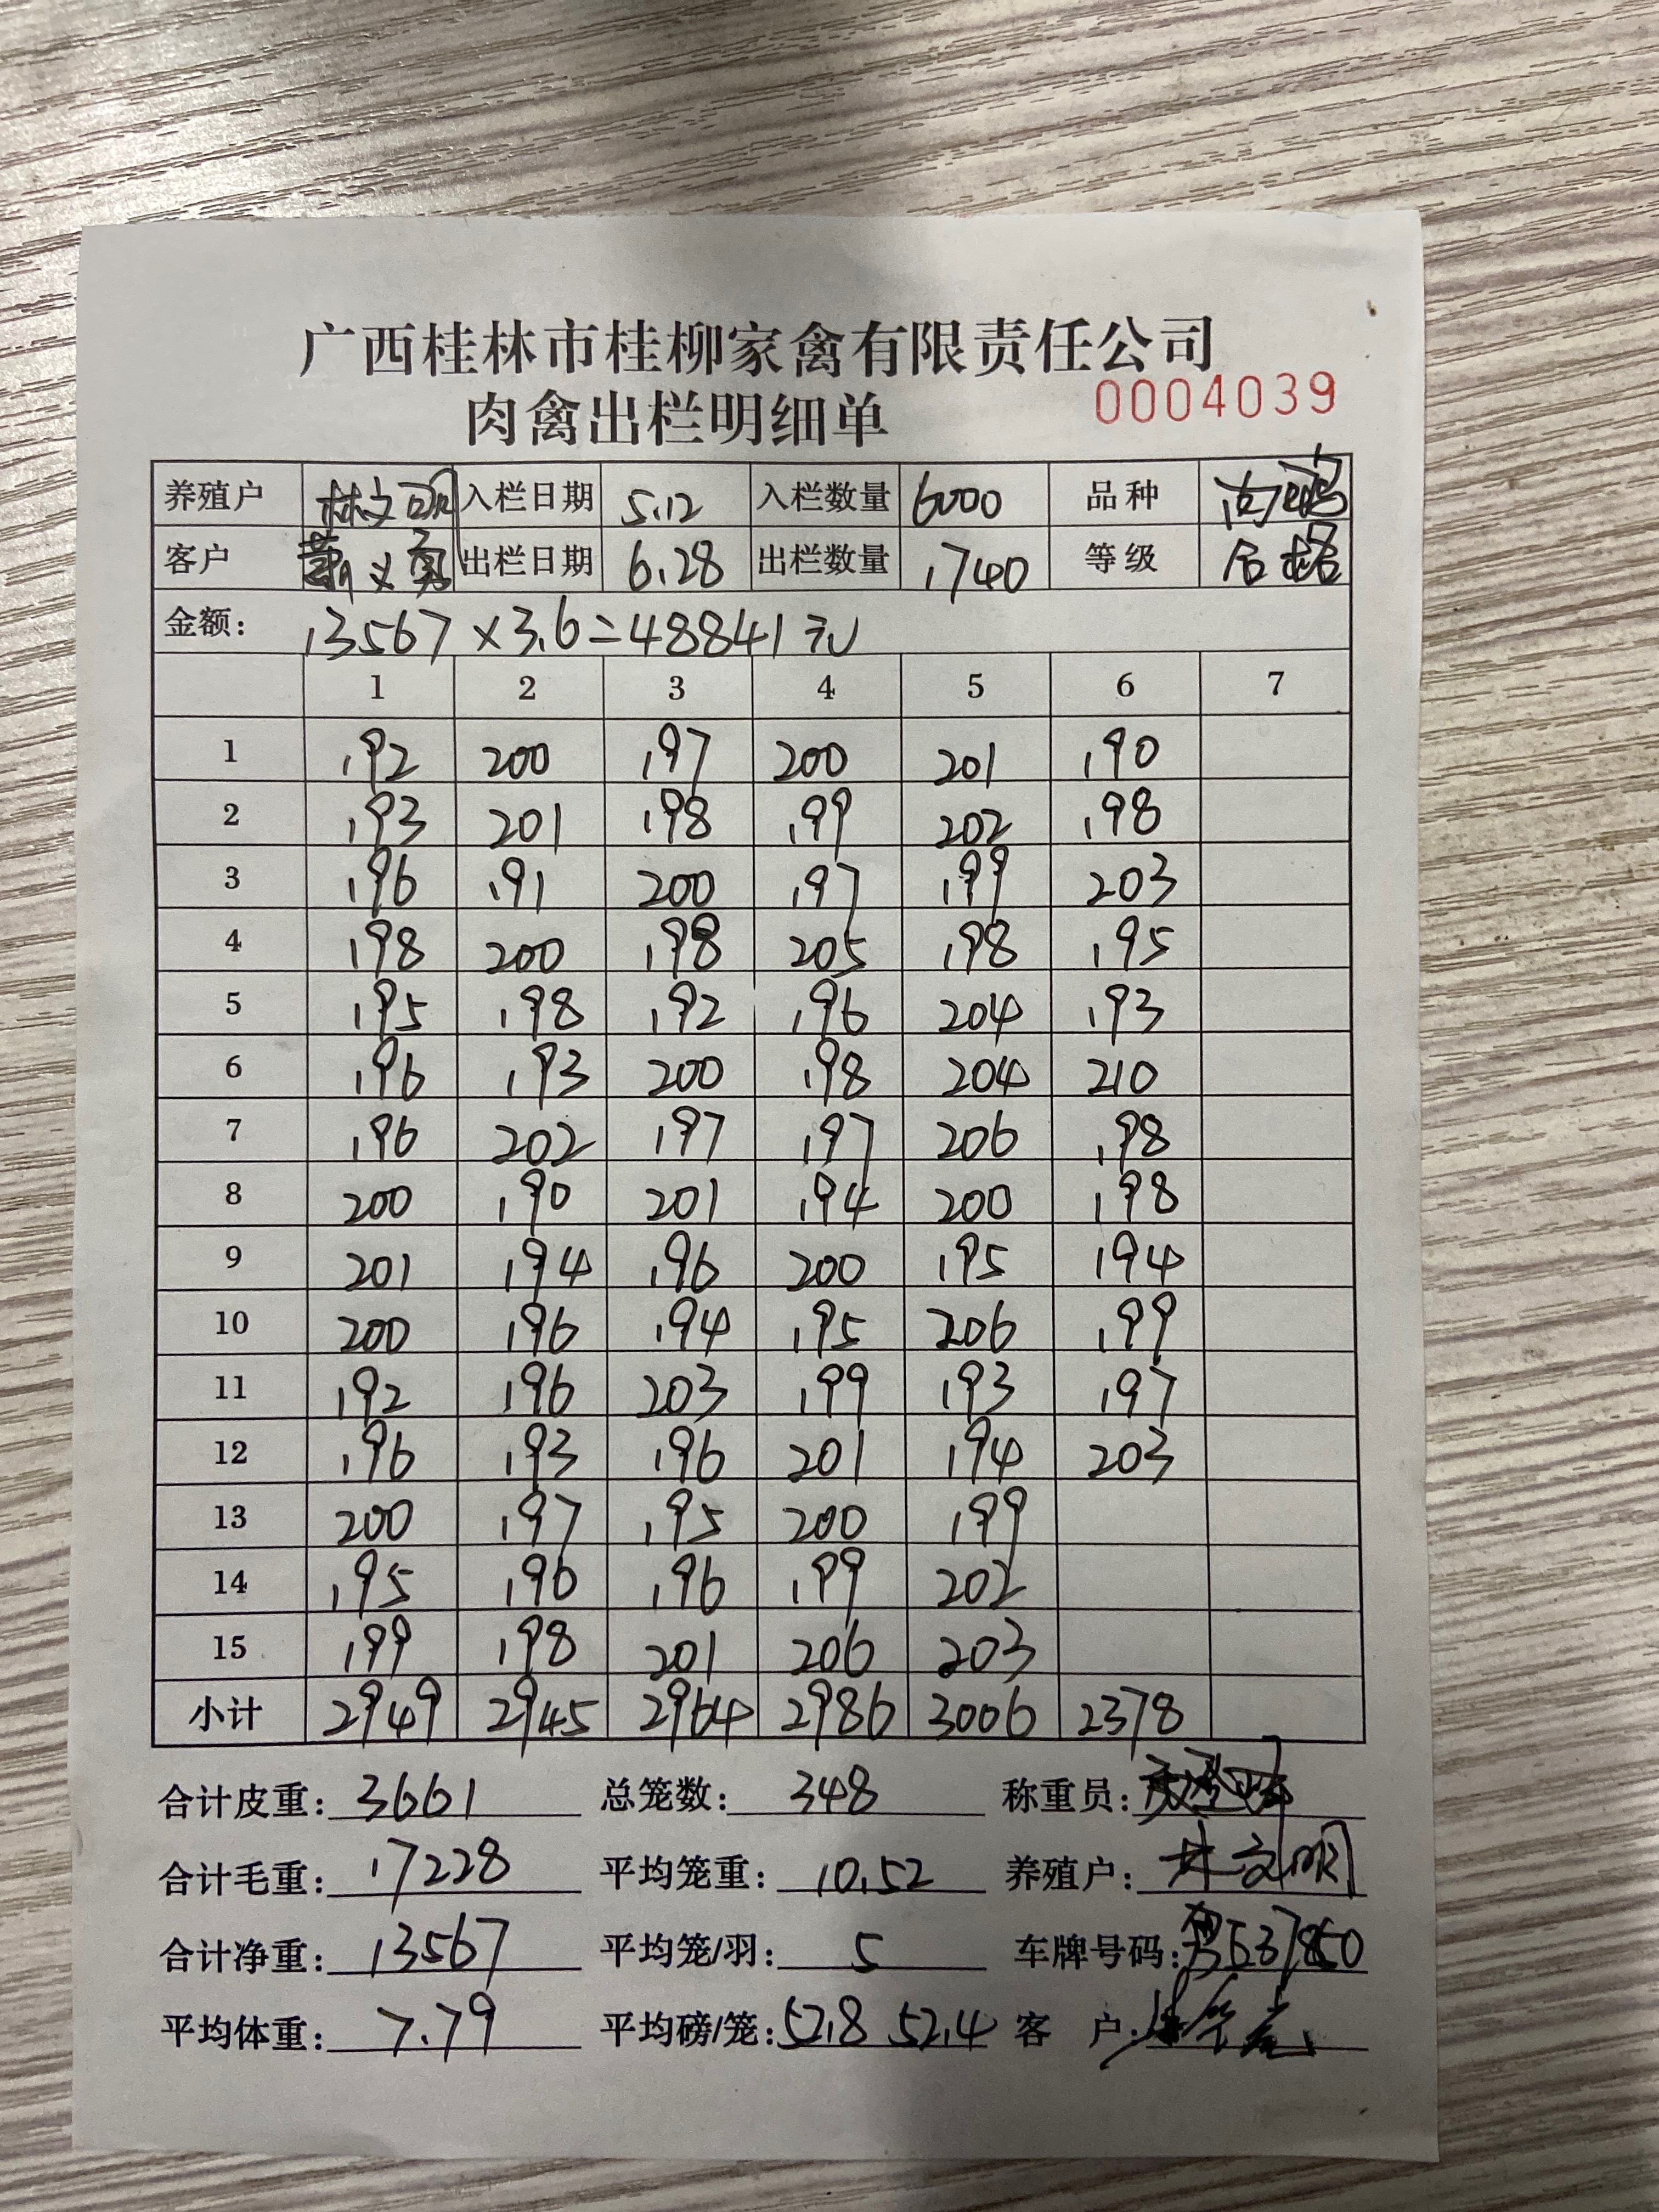 广西桂林市桂柳家禽有限责任公司
肉禽出栏明细单 0004039
养殖户 林文明 入栏日期 5.12 入栏数量 6000 品种
客户 义勇 出栏日期 6.28 出栏数量 1740 等级 合格
金额: 13567×3.6=48841元
1 2 3 4 5 6 7
1 192 200 197 200 201 190
2 193 201 198 199 202 198
3 196 191 200 197 199 203
4 198 200 198 205 198 195
5 195 198 192 196 204 193
6 196 193 200 198 204 210
7 196 202 197 197 206 198
8 200 190 201 194 200 198
9 201 194 196 200 195 194
10 200 196 194 195 206 199
11 192 196 203 199 193 197
12 196 193 196 201 194 203
13 200 197 195 200 199
14 195 196 196 199 202
15 199 198 201 206 203
小计 2949 2945 2964 2986 3006 2378
合计皮重: 3661 总笼数: 348 称重员:
合计毛重: 17228 平均笼重: 10.52 养殖户: 林文明
合计净重: 13567 平均笼/羽: 5 车牌号码:
平均体重: 7.79 平均磅/笼: 52.8 52.4 客 户: